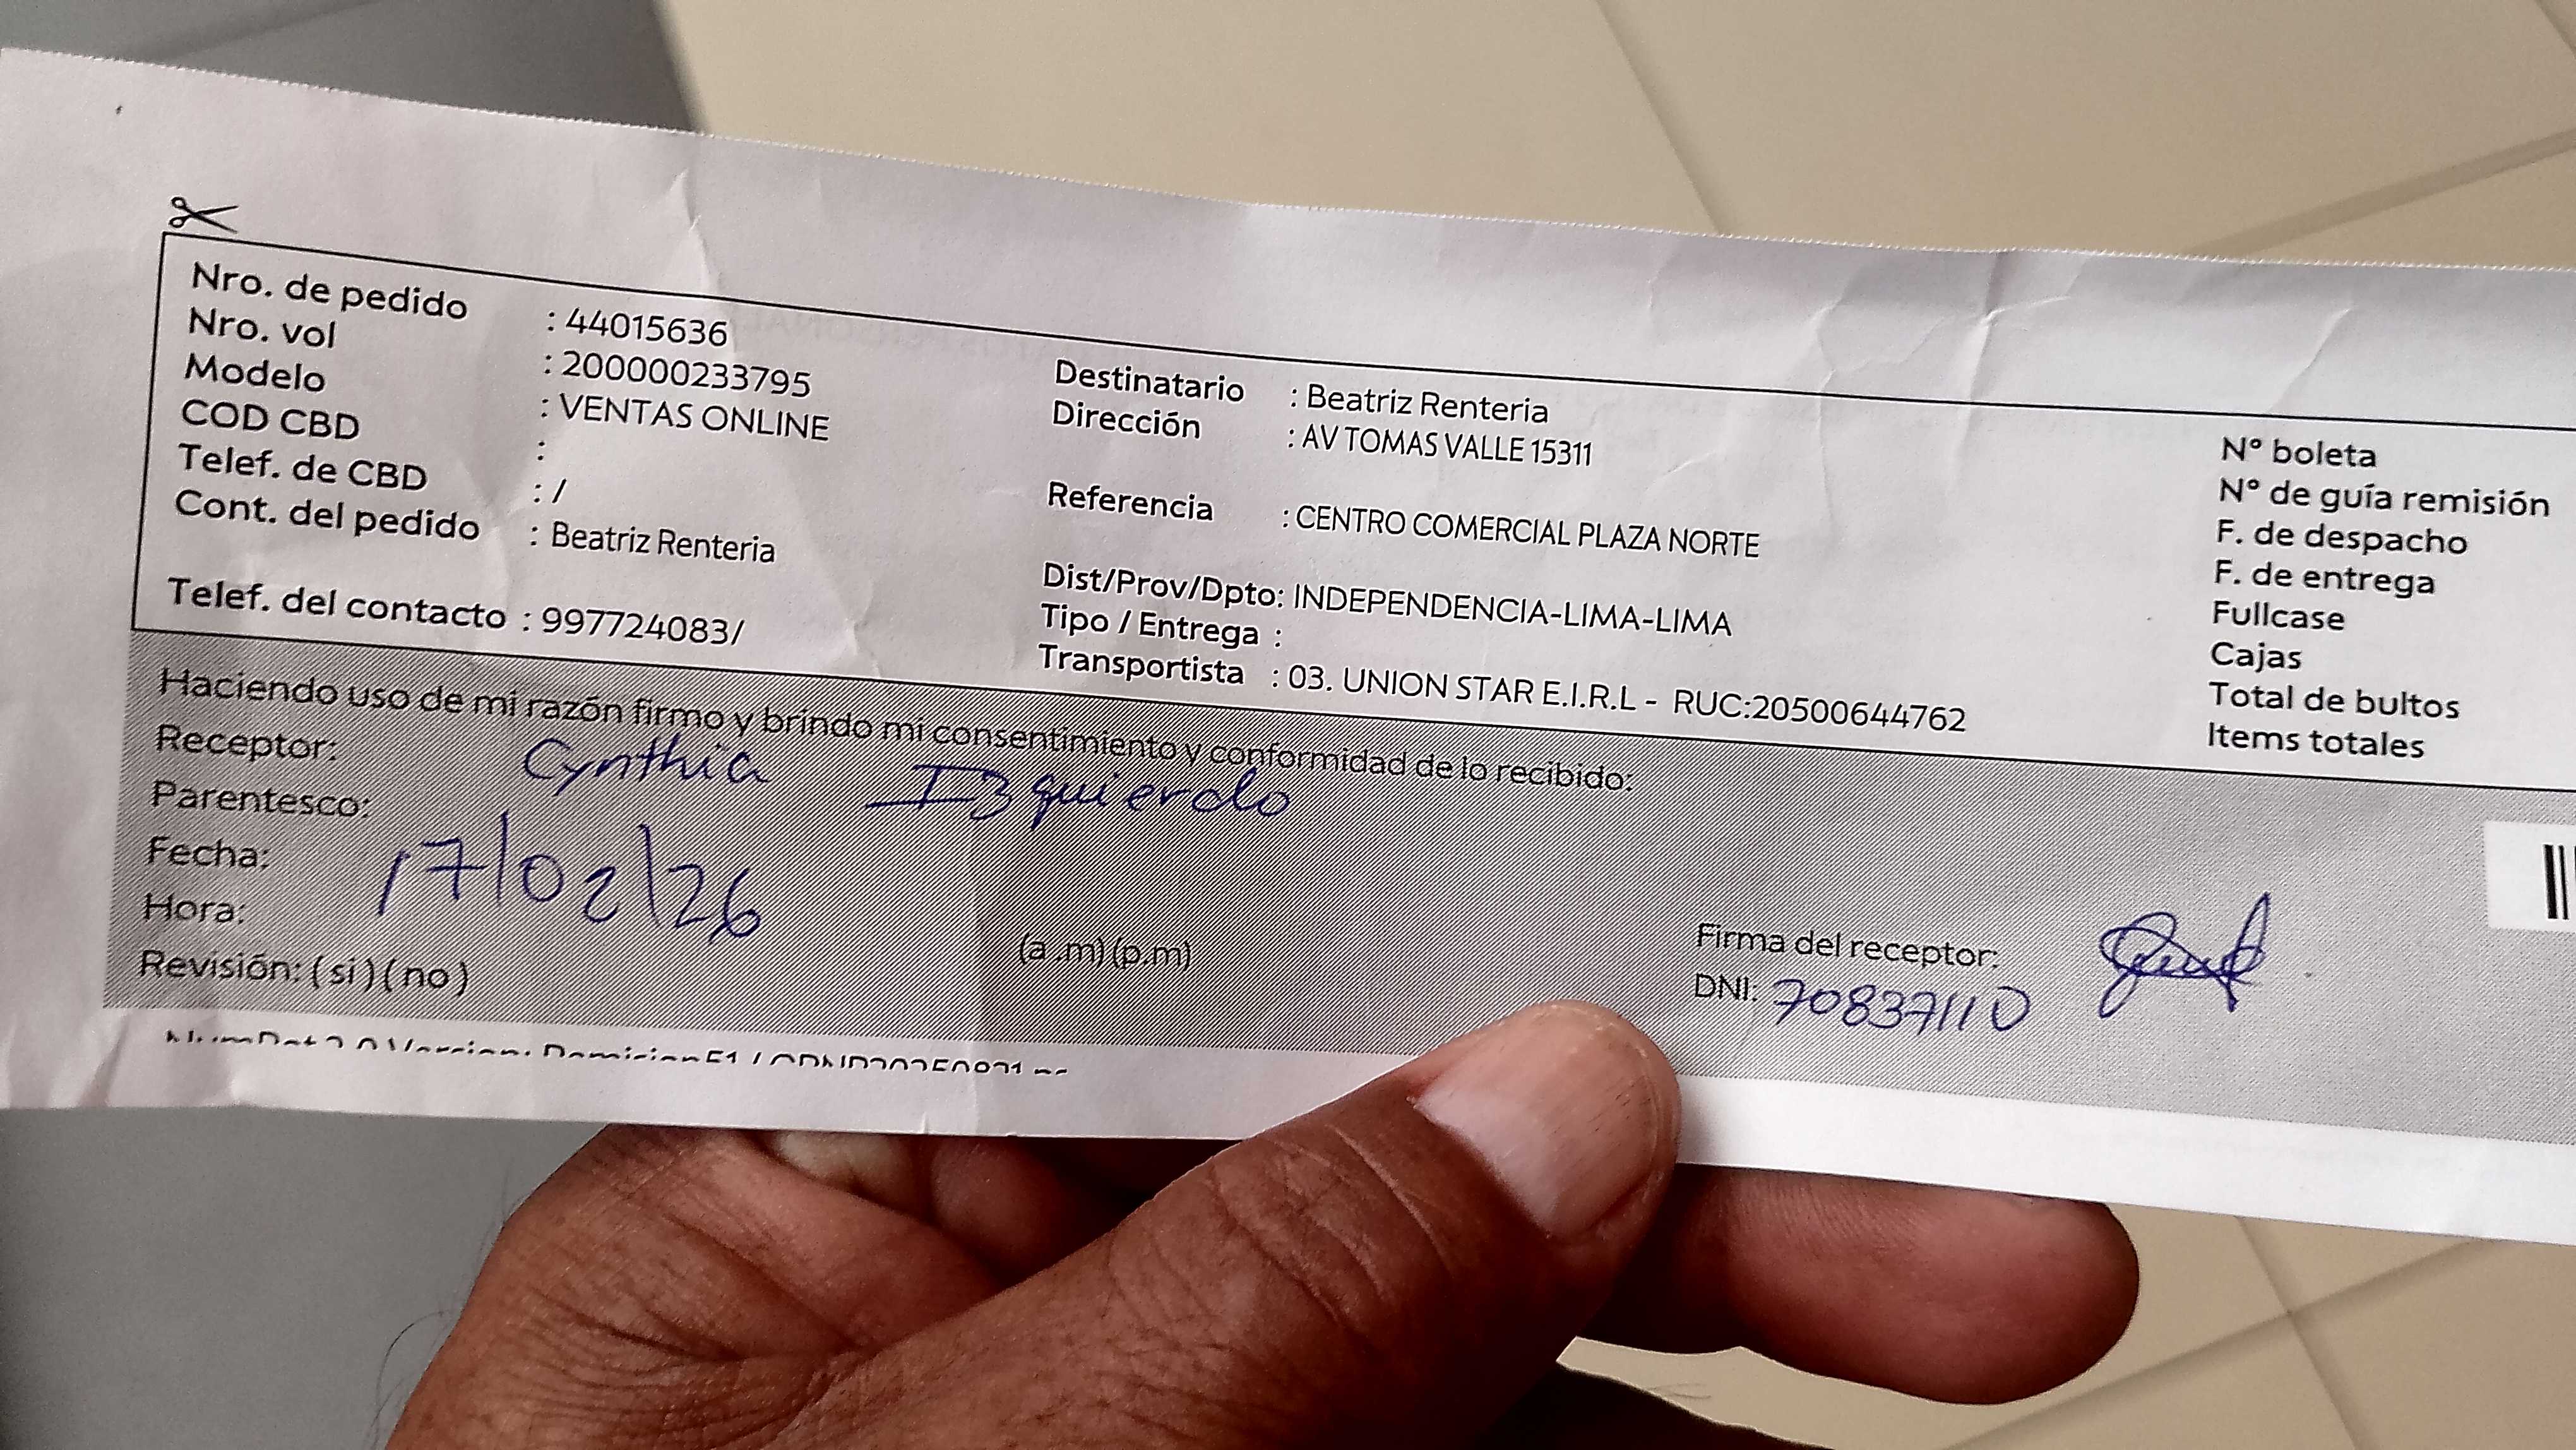 Nro. de pedido : 44015636
Nro. vol : 200000233795
Modelo : VENTAS ONLINE
COD CBD :
Telef. de CBD : /
Cont. del pedido : Beatriz Renteria
Telef. del contacto : 997724083/
Destinatario : Beatriz Renteria
Dirección : AV TOMAS VALLE 15311
Referencia : CENTRO COMERCIAL PLAZA NORTE
Dist/Prov/Dpto: INDEPENDENCIA-LIMA-LIMA
Tipo / Entrega :
Transportista : 03. UNION STAR E.I.R.L - RUC:20500644762
N° boleta
N° de guía remisión
F. de despacho
F. de entrega
Fullcase
Cajas
Total de bultos
Items totales
Haciendo uso de mi razón firmo y brindo mi consentimiento y conformidad de lo recibido:
Receptor: Cynthia Izquierdo
Parentesco:
Fecha: 17/02/26
Hora: (a.m) (p.m)
Revisión: (si) (no)
Firma del receptor:
DNI: 70837110